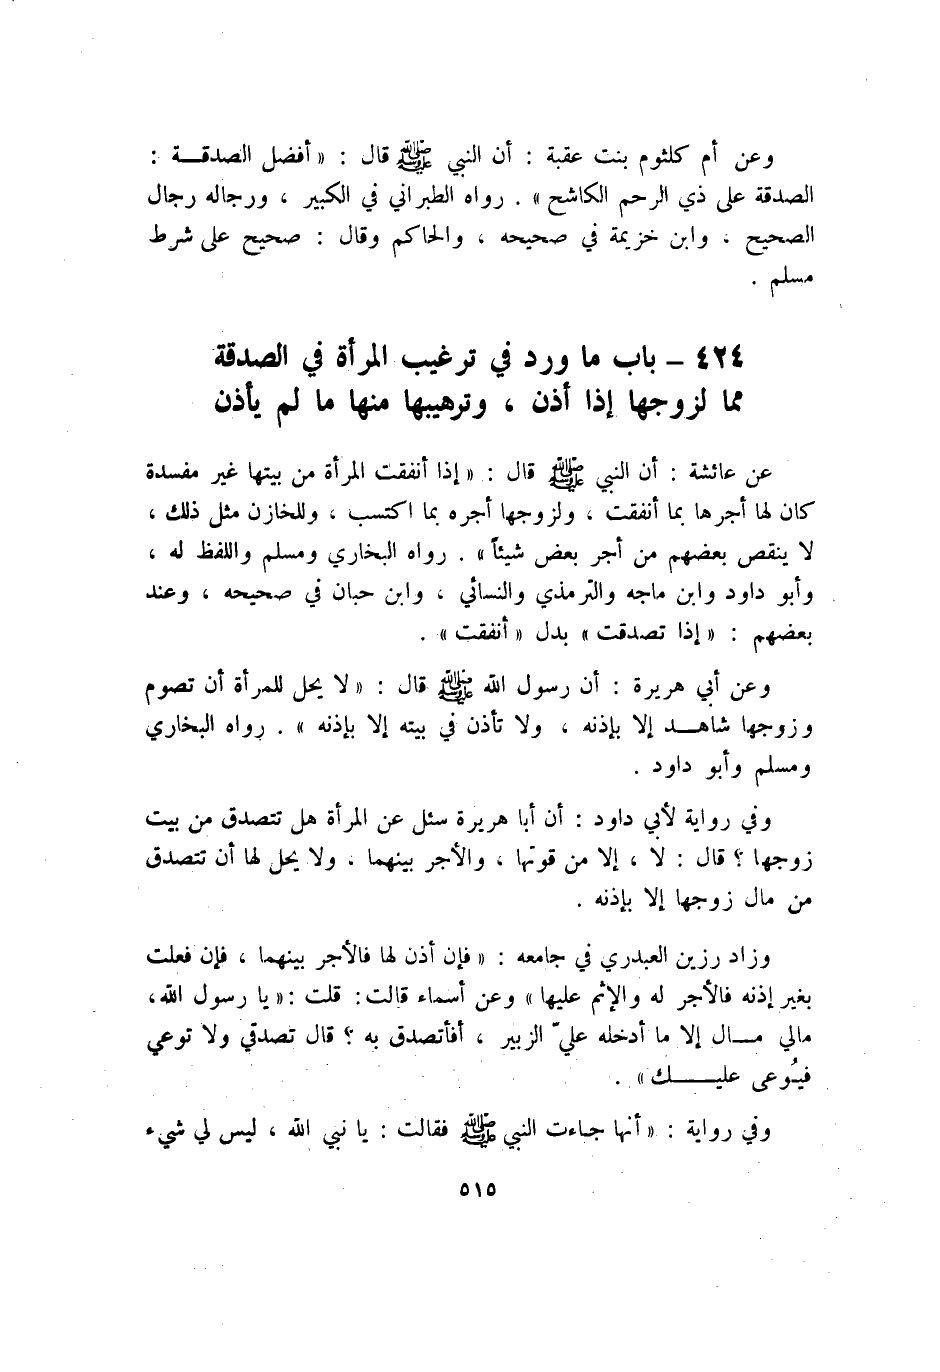 وعن أم كلثوم بنت عقبة : أن النبي ﷺ قال : « أفضل الصدقـــة :
الصدقة على ذي الرحم الكاشح » . رواه الطبراني في الكبير ، ورجاله رجال
الصحيح ، وابن خزيمة في صحيحه ، والحاكم وقال : صحيح على شرط
مسلم .
٤٢٤ – باب ما ورد في ترغيب المرأة في الصدقة
مما لزوجها إذا أذن ، وترهيبها منها ما لم يأذن
عن عائشة : أن النبي ﷺ قال : « إذا أنفقت المرأة من بيتها غير مفسدة
كان لها أجرها بما أنفقت ، ولزوجها أجره بما اكتسب ، وللخازن مثل ذلك ،
لا ينقص بعضهم من أجر بعض شيئاً » . رواه البخاري ومسلم واللفظ له ،
وأبو داود وابن ماجه والترمذي والنسائي ، وابن حبان في صحيحه ، وعند
بعضهم : « إذا تصدقت » بدل « أنفقت » .
وعن أبي هريرة : أن رسول الله ﷺ قال : « لا يحل للمرأة أن تصوم
وزوجها شاهـــد إلا بإذنه ، ولا تأذن في بيته إلا بإذنه » . رواه البخاري
ومسلم وأبو داود .
وفي رواية لأبي داود : أن أبا هريرة سئل عن المرأة هل تتصدق من بيت
زوجها ؟ قال : لا ، إلا من قوتها ، والأجر بينهما ، ولا يحل لها أن تتصدق
من مال زوجها إلا بإذنه .
وزاد رزين العبدري في جامعه : « فإن أذن لها فالأجر بينهما ، فإن فعلت
بغير إذنه فالأجر له والإثم عليها » وعن أسماء قالت : قلت : « يا رسول الله ،
مالي مـــال إلا ما أدخله عليّ الزبير ، أفأتصدق به ؟ قال تصدقي ولا توعي
فيُوعى عليـــــك » .
وفي رواية : « أنها جاءت النبي ﷺ فقالت : يا نبي الله ، ليس لي شيء
٥١٥